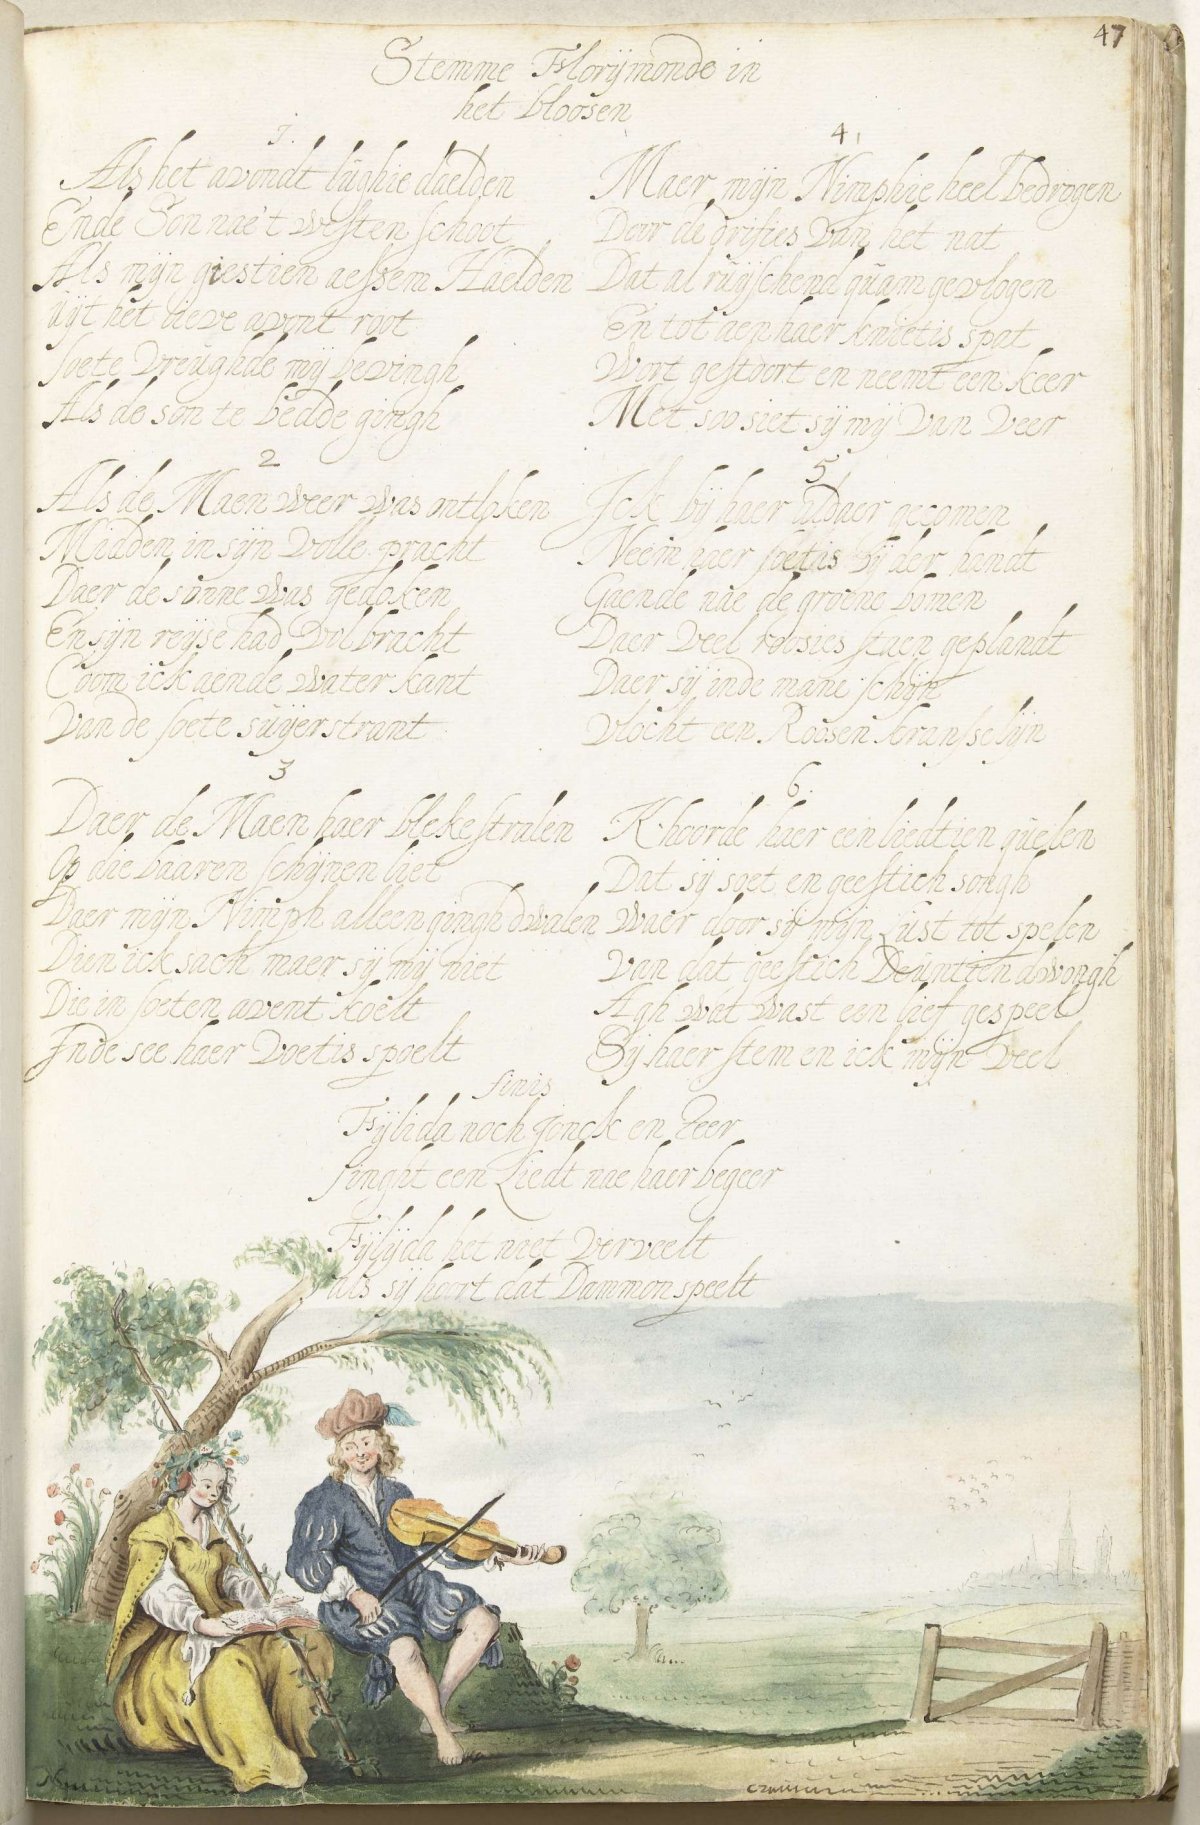 47
Stemme Florijmonde in
het bloosen
1.
Als het avondt lughie daelden
Ende Son nae't westen schoot
Als mijn giestien aessem Haelden
uijt het lieve avont root
soete vreughde mij bevingh
Als de son te bedde gingh
2
Als de Maen weer was ontloken
Midden in sijn volle pracht
Daer de sonne was gedoken
En sijn reijse had volbracht
Coom ick aende water kant
Van de soete suijer strant
3
Daer de Maen haer bleke stralen
Op die baaren schijnen liet
Daer mijn Nimph alleen gingh dwalen
Dien ick sach maer sij mij niet
Die in soeten avent koelt
Inde see haer voetis spoelt
4.
Maer mijn Nimphie heel bedrogen
Door de grisies van het nat
Dat al ruijschend quam gevlogen
En tot aen haer knietis spat
Wort gestoort en neemt een keer
Met soo siet sij mij van veer
5
Ick bij haer aldaer gecomen
Neem haer soetis bij der handt
Gaende nae de groene bomen
Daer veel roosies staen geplandt
Daer sij inde mane schijn
vlocht een Roosen kransselijn
6.
K hoorde haer een liedtien quelen
Dat sij soet en geestich songh
waer door sij mijn lust tot spelen
van dat geestich Deuntien dwongh
Agh wat wast een lief gespeel
Sij haer stem en ick mijn veel
finis
Fijlida noch jonck en teer
singht een Liedt nae haer begeer
Fijlijda het niet verveelt
als sij hoort dat Dammon speelt